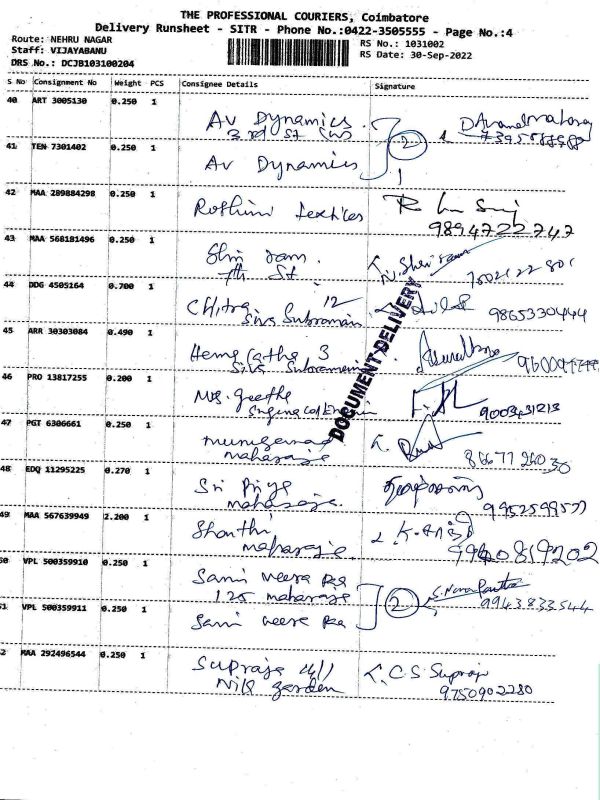 THE PROFESSIONAL COURIERS, Coimbatore
Delivery Runsheet - SITR - Phone No.:0422-3505555 - Page No.:4
Route: NEHRU NAGAR
Staff: VIJAYABANU
DRS No.: DCJB103100204
RS No.: 1031002
RS Date: 30-Sep-2022
S No Consignment No Weight PCS Consignee Details Signature
40 ART 3005130 0.250 1 Av Dynamics
3rd St
41 TEN 7301402 0.250 1 Av Dynamics
2
42 MAA 289884298 0.250 1 Rothini textiles
9894722747
43 MAA 568181496 0.250 1 Shri ram
7th St
44 DDG 4505164 0.700 1 Chitra 12
Siva Subramani 9865330444
45 ARR 30303084 0.490 1 Hema Latha 3
46 PRO 13817255 0.200 1 Mrs. Geetha
9003431213
47 PGT 6306661 0.250 1
maharaja
48 EDQ 11295225 0.270 1 Sri Priya
maharaja
9952599577
49 MAA 567639949 2.200 1 Shanthi
maharaja
9940819202
50 VPL 500359910 0.250 1 Sami veera
125 maharaja
51 VPL 500359911 0.250 1 Sami veera
2
9943833544
52 MAA 292496544 0.250 1 Supraja
Nila garden
C.S. Supraja
9750902280
DOCUMENT DELIVERY